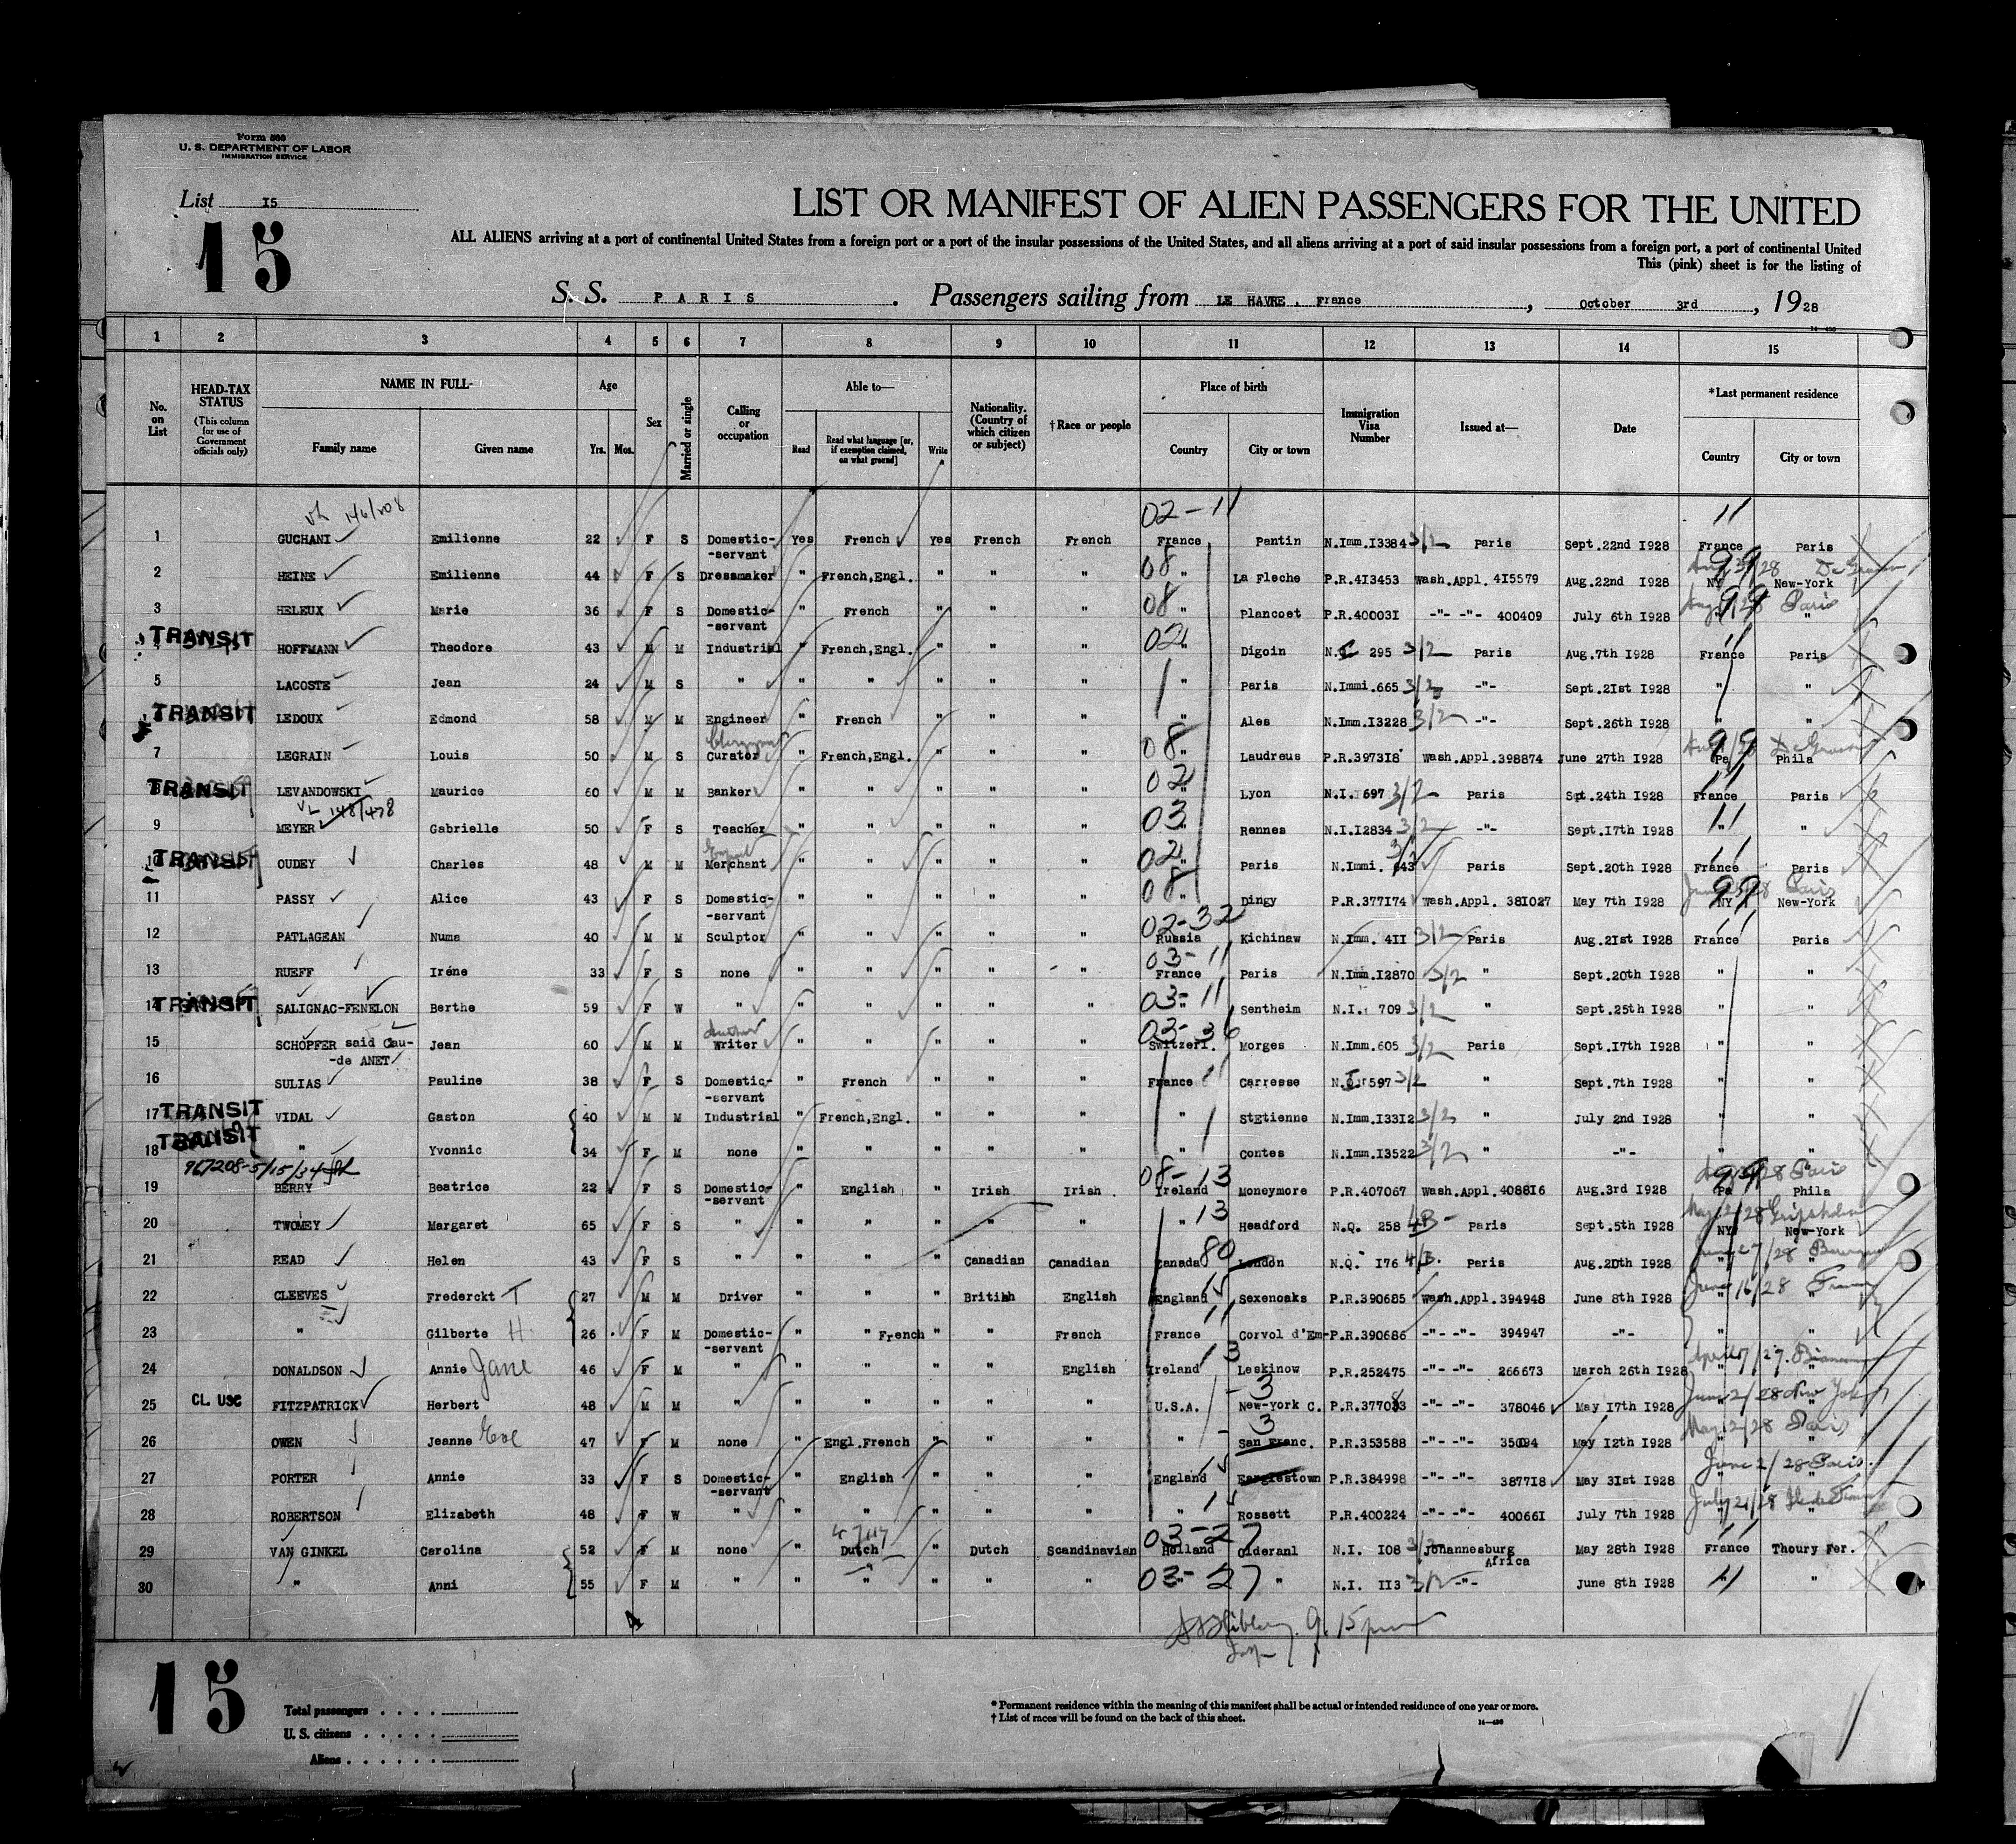 Form 500
U. S. DEPARTMENT OF LABOR
IMMIGRATION SERVICE
List I5
15
LIST OR MANIFEST OF ALIEN PASSENGERS FOR THE UNITED
ALL ALIENS arriving at a port of continental United States from a foreign port or a port of the insular possessions of the United States, and all aliens arriving at a port of said insular possessions from a foreign port, a port of continental United
This (pink) sheet is for the listing of
S. S. PARIS. Passengers sailing from LE HAVRE. France, October 3rd, 1928
14-430
1 2 3 4 5 6 7 8 9 10 11 12 13 14 15
No. on List
HEAD-TAX STATUS (This column for use of Government officials only)
NAME IN FULL
Family name Given name
Age Yrs. Mos.
Sex
Married or single
Calling or occupation
Able to—
Read Read what language [or, if exemption claimed, on what ground] Write
Nationality. (Country of which citizen or subject)
†Race or people
Place of birth
Country City or town
Immigration Visa Number
Issued at—
Date
*Last permanent residence
Country City or town
146/208 02-11 11
1 GUCHANI Emilienne 22 F S Domestic- -servant Yes French Yes French French France Pantin N.Imm.I3384 3/2 Paris Sept.22nd I928 France Paris
2 HEINE Emilienne 44 F S Dressmaker " French,Engl. " " " 08 " La Fleche P.R.4I3453 Wash.Appl. 4I5579 Aug.22nd I928 99 NY New-York
3 HELEUX Marie 36 F S Domestic- -servant " French " " " 08 " Plancoet P.R.40003I -"- -"- 400409 July 6th I928 99 " Paris "
TRANSIT HOFFMANN Theodore 43 M M Industrial " French,Engl. " " " 02 " Digoin N. 295 3/2 Paris Aug.7th I928 France Paris
5 LACOSTE Jean 24 M S " " " " " " " Paris N.Immi.665 3/2 -"- Sept.2Ist I928 " "
TRANSIT LEDOUX Edmond 58 M M Engineer " French " " " " Ales N.Imm.I3228 3/2 -"- Sept.26th I928 " "
7 LEGRAIN Louis 50 M S Curator " French,Engl. " " " 08 " Laudreus P.R.3973I8 Wash.Appl.398874 June 27th I928 99 Pa Phila
TRANSIT LEVANDOWSKI Maurice 60 M M Banker " " " " " 02 " Lyon N.I. 697 3/2 Paris Spt.24th I928 France Paris
148/478
9 MEYER Gabrielle 50 F S Teacher " " " " " 03 " Rennes N.I.I2834 3/2 -"- Sept.I7th I928 " "
10 TRANSIT OUDEY Charles 48 M M Merchant " " " " " 02 " Paris N.Immi. 643 Paris Sept.20th I928 France Paris
11 PASSY Alice 43 F S Domestic- -servant " " " " " 08 " Dingy P.R.377I74 Wash.Appl. 38I027 May 7th I928 99 NY New-York
12 PATLAGEAN Numa 40 M M Sculptor " " " " " 02-32 Russia Kichinaw N.Imm. 4II 3/2 Paris Aug.2Ist I928 France Paris
13 RUEFF Iréne 33 F S none " " " " " 03-11 France Paris N.Imm.I2870 3/2 " Sept.20th I928 " "
14 TRANSIT SALIGNAC-FENELON Berthe 59 F W " " " " " " 03-11 " Sentheim N.I. 709 3/2 " Sept.25th I928 " "
15 SCHOPFER said Cau- -de ANET Jean 60 M M Writer " " " " " 03-36 Switzerl. Morges N.Imm.605 3/2 Paris Sept.I7th I928 " "
16 SULIAS Pauline 38 F S Domestic- -servant " French " " " France Carresse N. 597 3/2 " Sept.7th I928 " "
17 TRANSIT VIDAL Gaston 40 M M Industrial " French,Engl. " " " " StEtienne N.Imm.I33I2 3/2 " July 2nd I928 " "
18 TRANSIT " Yvonnic 34 F M none " " " " " " Contes N.Imm.I3522 3/2 " -"- " "
967208-5/15/34
19 BERRY Beatrice 22 F S Domestic- -servant " English " Irish Irish 08-13 Ireland Moneymore P.R.407067 Wash.Appl.4088I6 Aug.3rd I928 Pa Paris Phila
20 TWOMEY Margaret 65 F S " " " " " " " 13 Headford N.Q. 258 4B Paris Sept.5th I928 NY New-York
21 READ Helen 43 F S " " " " Canadian Canadian Canada 80 London N.Q. I76 4B. Paris Aug.20th I928 " "
22 CLEEVES Frederckt T 27 M M Driver " " " British English England Sexenoaks P.R.390685 Wash.Appl.394948 June 8th I928 June 16/28 " "
23 " Gilberte H 26 F M Domestic- -servant " " French " " French France 11 Corvol d'Em- P.R.390686 -"- -"- 394947 -"- " "
24 DONALDSON Annie Jane 46 F M " " " " English Ireland 13 Leskinow P.R.252475 -"- -"- 266673 March 26th I928 " "
25 CL. USC FITZPATRICK Herbert 48 M M " " " " " " U.S.A. 3 New-York C. P.R.377083 -"- -"- 378046 May I7th I928 June 2/28 New York
26 OWEN Jeanne 47 F M none " Engl.French " " " " 3 San Franc. P.R.353588 -"- -"- 35094 May I2th I928 May 2/28 Paris
27 PORTER Annie 33 F S Domestic- -servant " English " " " England Earglestown P.R.384998 -"- -"- 3877I8 May 3Ist I928 June 2/28 Paris
28 ROBERTSON Elizabeth 48 F W " " " " " " " Rossett P.R.400224 -"- -"- 40066I July 7th I928
29 VAN GINKEL Carolina 52 F M none " Dutch " Dutch Scandinavian 03-27 Holland Olderanl N.I. I08 3/2 Johannesburg Africa May 28th I928 France Thoury Fer.
30 " Anni 55 F M " " " " " " 03-27 " " N.I. II3 3/2 -"- June 8th I928 " "
9.15 pm
15
Total passengers
U. S. citizens
Aliens
* Permanent residence within the meaning of this manifest shall be actual or intended residence of one year or more.
† List of races will be found on the back of this sheet.
14-430